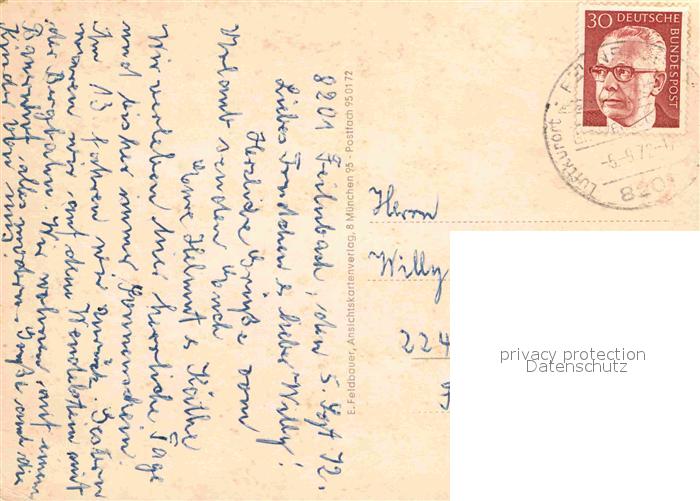 8201 Feilnbach, den 5. Sept 72.
Liebes Frauchen & lieber Willy!
Herzliche Grüße vom
Urlaub senden Euch
Eure Helmut & Käthe
Wir verleben hier herrliche Tage
und bisher immer Sonnenschein
Am 13 fahren wir zurück. Gestern
waren wir auf dem Wendelstein mit
der Bergbahn. Wir wohnen auf einem
Bauernhof, alles modern. Grüße an die
Kinder von mir!
E. Feldbauer, Ansichtskartenverlag, 8 München 95 - Postfach 950172
30 DEUTSCHE
BUNDESPOST
Luftkurort
-5.-9.72-1
820
Herrn
Willy
224
privacy protection
Datenschutz